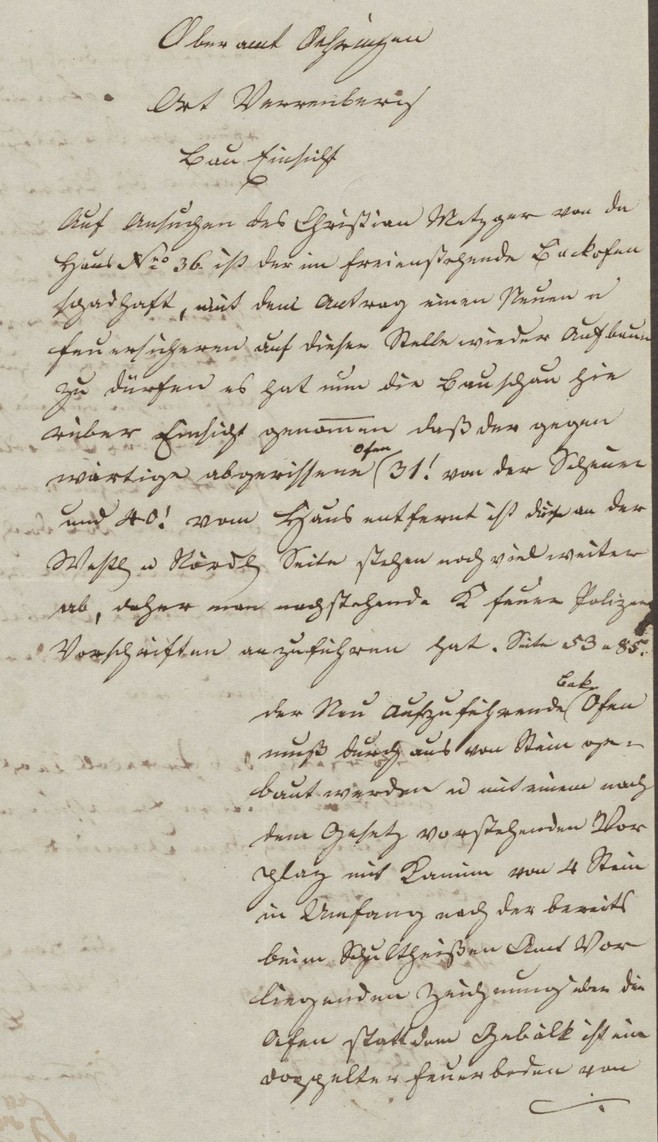 Oberamt Oehringen
Ort Verrenberg
Bau Einsicht
Auf Ansuchen des Christian Metzger von da
Haus No 36 ist der im freienstehende Backofen
schadhaft, mit dem Antrag einen Neuen u
feuersicheren auf dieser Stelle wieder Aufbauen
zu dürfen es hat nun die Bauschau hie
rüber Einsicht genommen daß der gegen
wärtige abgerissene Ofen 31! von der Scheuer
und 40! vom Haus entfernt ist die an der
Westl u Nördl Seite stehen noch viel weiter
ab, daher man nachstehende K feuer Polizey
Vorschriften anzuführen hat. Seite 53 u 85
der Neu Aufzuführende Bak Ofen
muß durch aus von Stein ge-
baut werden u mit einem nach
dem Gesetz vorstehenden Vor
platz mit Kamin von 4 Stein
in Umfang nach der bereits
beim Schultheißen Amt Vor
liegenden Zeichnung über die
Ofen statt dem Gebälk ist ein
doppelter feuerboden von